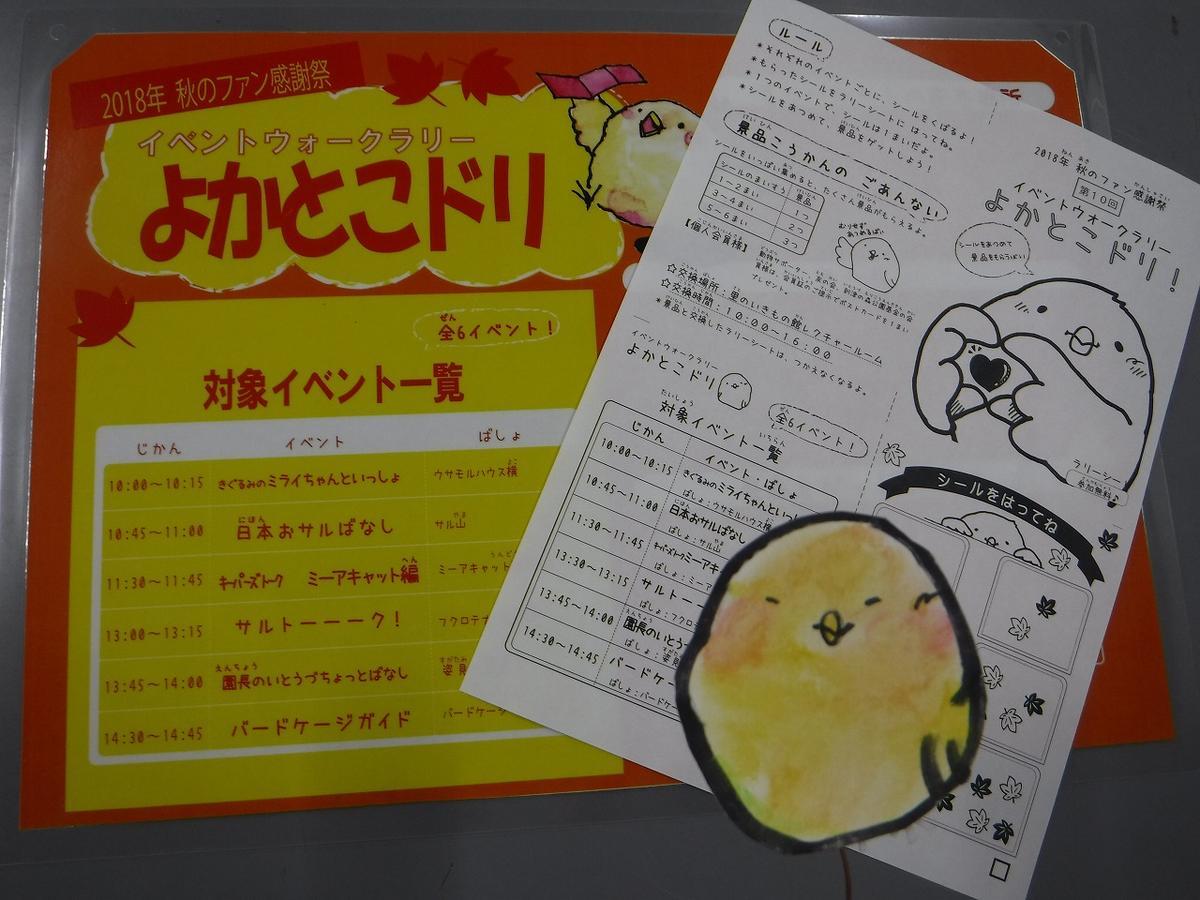 2018年 秋のファン感謝祭
イベントウォークラリー
よかとこドリ
ぜん
全6イベント！
対象イベント一覧
じかん イベント ばしょ
10:00～10:15 きぐるみのミライちゃんといっしょ ウサモルハウス横
よこ
10:45～11:00 日本おサルばなし サル山
にほん やま
11:30～11:45 キーパーズトーク ミーアキャット編 ミーアキャット
へん
13:00～13:15 サルトーーーク！ フクロテナ
13:45～14:00 園長のいとうづちょっとばなし 姿見
えんちょう すがたみ
14:30～14:45 バードケージガイド バードケージ
ルール
＊それぞれのイベントごとに、シールをくばるよ！
＊もらったシールをラリーシートに はってね。
＊1つのイベントで、シールは1まいだよ。
＊シールをあつめて、景品をゲットしよう！
けいひん
景品こうかんの ごあんない
シールをいっぱい集めると、たくさん景品がもらえるよ。
シールのまいすう 景品
1～2まい 1つ
3～4まい 2つ
5～6まい 3つ
むりせず
あつめるぽよ
【個人会員様】
動物サポーター、友の会、到津の森公園基金の会
員様は、会員証のご提示でポストカードを1まい
プレゼント。
☆交換場所：里のいきもの館レクチャールーム
☆交換時間：10:00～16:00
＊景品と交換したラリーシートは、つかえなくなるよ。
イベントウォークラリー
よかとこドリ
ぜん
全6イベント！
たいしょう いちらん
対象イベント一覧
じかん イベント・ばしょ
10:00～10:15 きぐるみのミライちゃんといっし
ばしょ：ウサモルハウス横
10:45～11:00 日本おサルばなし
ばしょ：サル山
11:30～11:45 キーパーズトーク ミーアキ
ばしょ：ミーア
13:00～13:15 サルトーー
ばしょ：フクロ
13:45～14:00 園長のいとうづ
ばしょ：姿見
14:30～14:45 バードケー
ばしょ：バードケ
2018年 秋のファン感謝祭
第10回
イベントウォークラリー
よかとこドリ！
シールをあつめて
景品をもらうぽい
ラリーシー
参加無料♪
シールをはってね